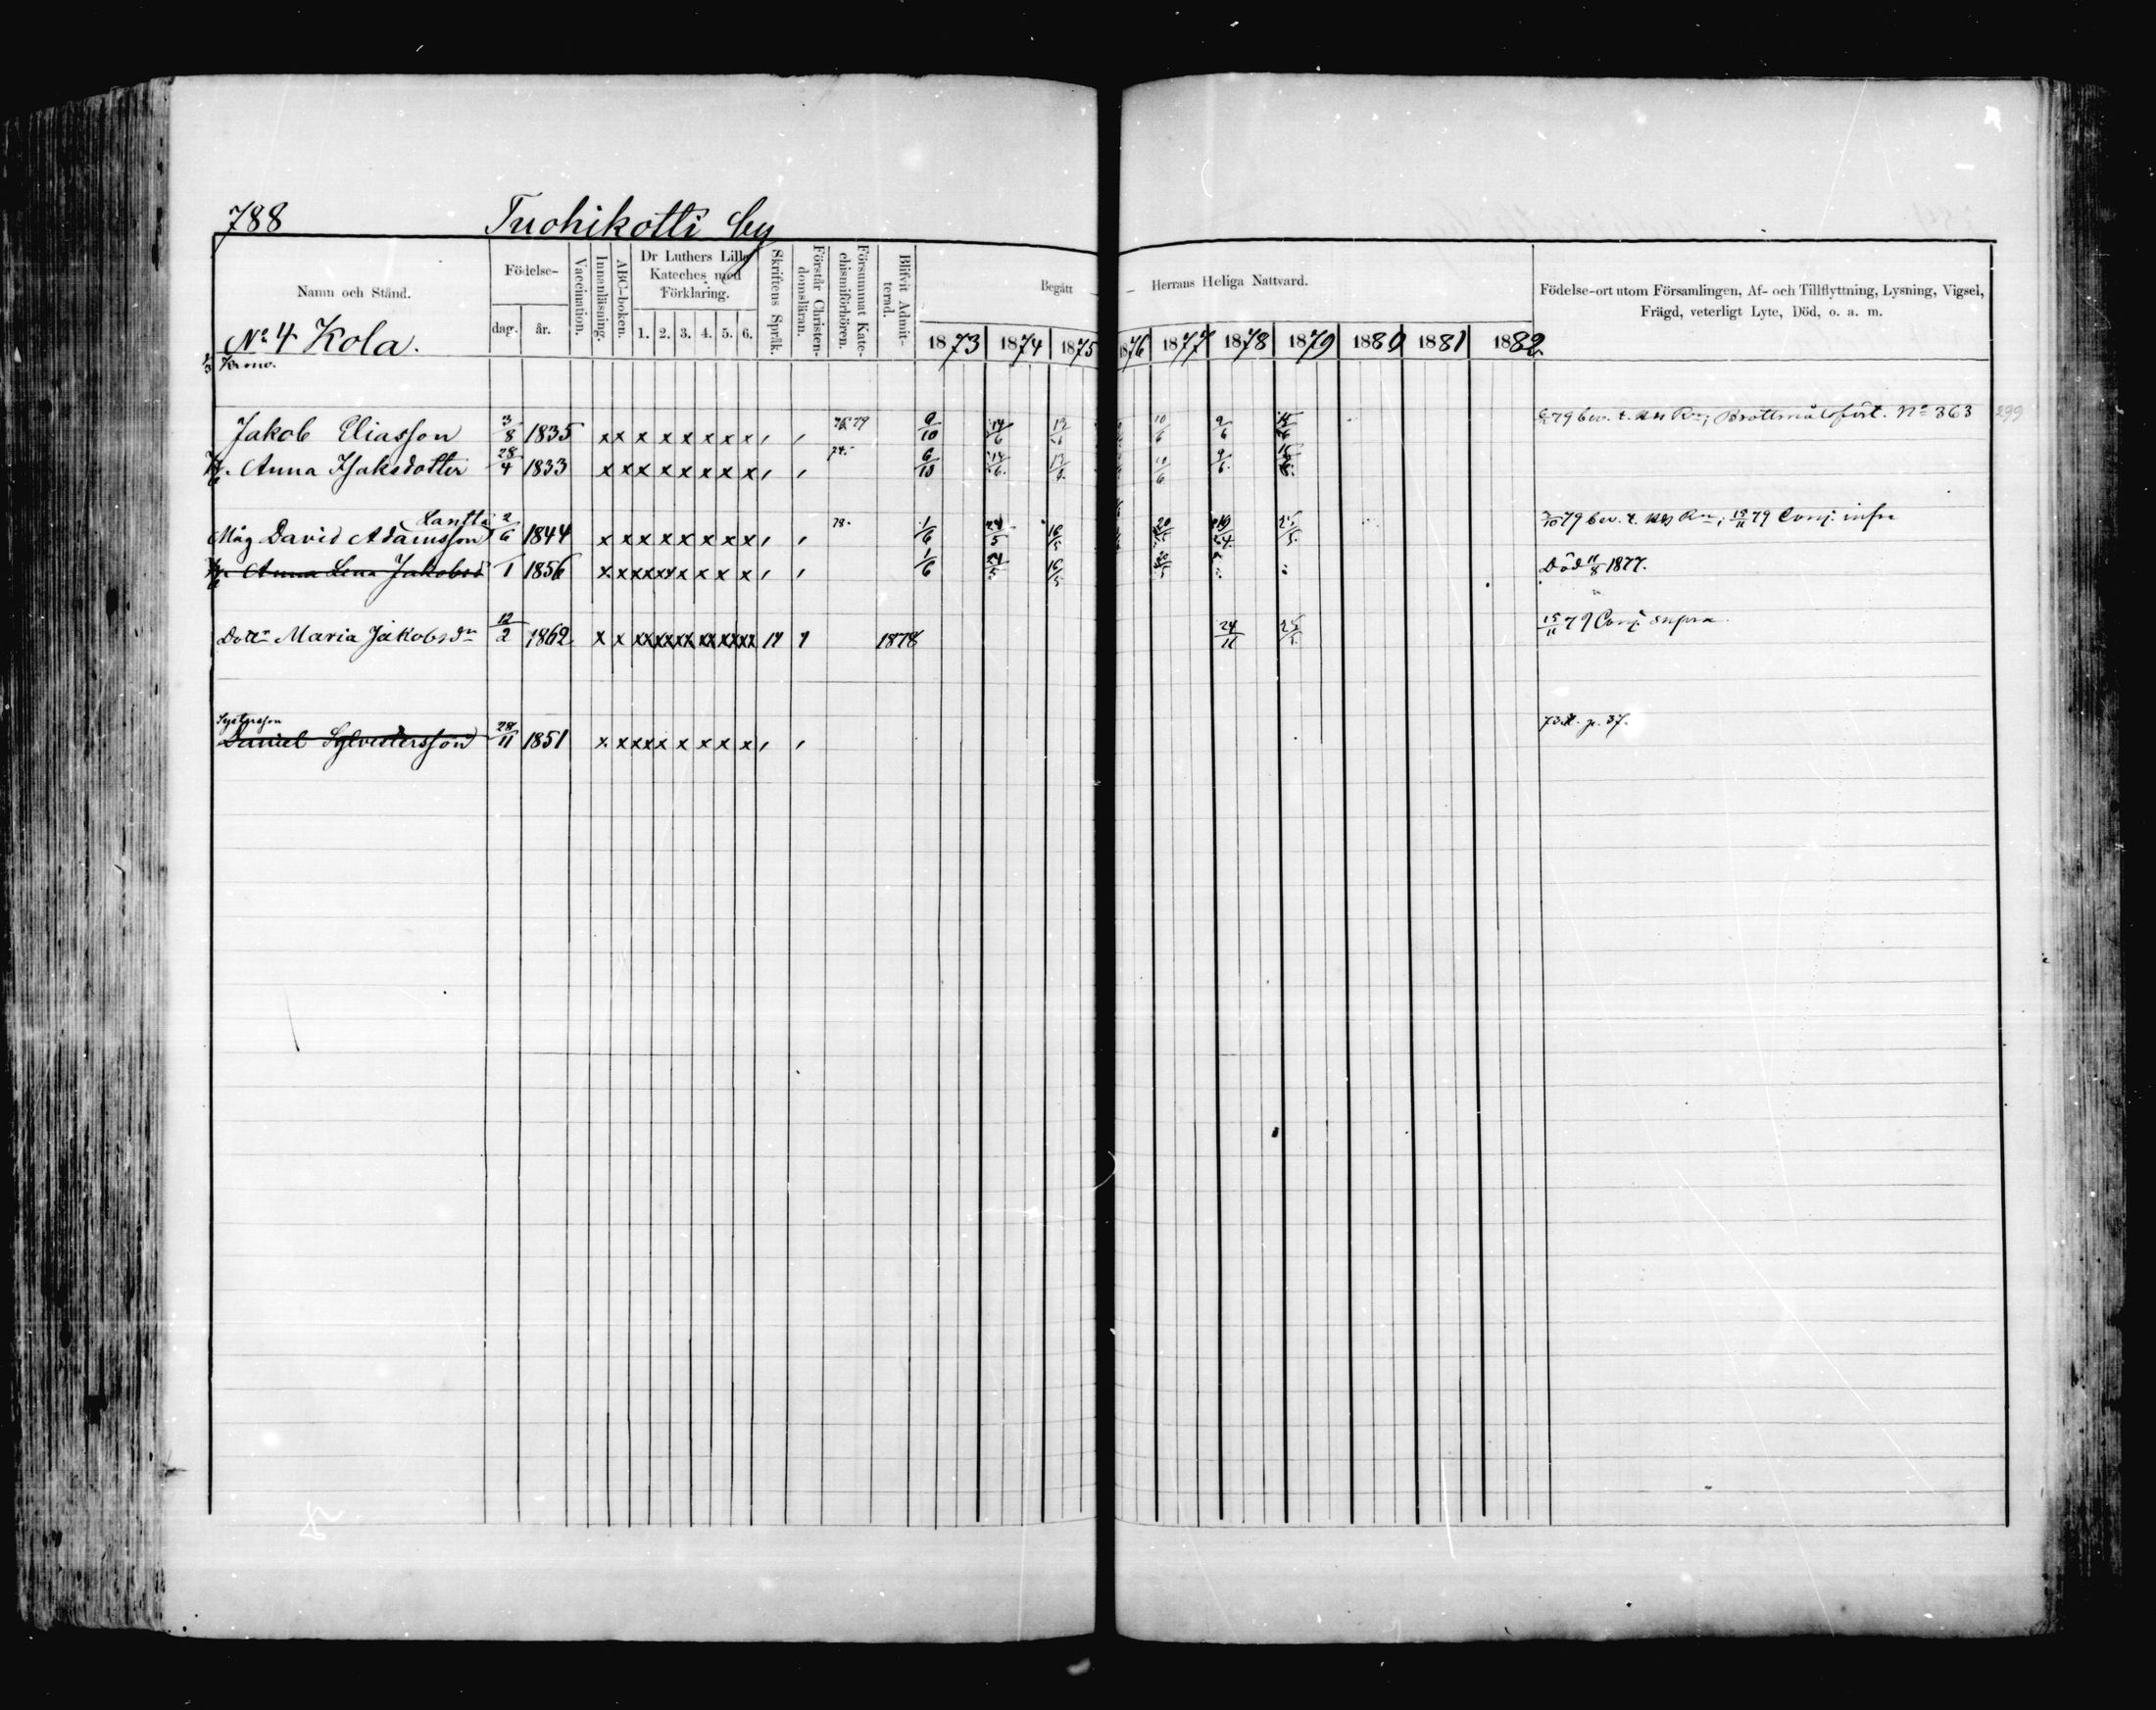 788 Tuohikotti by
Namn och Stånd.
Födelse-
dag. år.
Vaccination.
Innanläsning.
ABC-boken.
Dr Luthers Lilla
Kateches med
Förklaring.
1. 2. 3. 4. 5. 6.
Skriftens Språk.
Förstår Christen-
domsläran.
Försummat Kate-
chismiförhören.
Blifvit Admit-
terad.
Begått — Herrans Heliga Nattvard.
1873 1874 1875 1876 1877 1878 1879 1880 1881 1882
Födelse-ort utom Församlingen, Af- och Tillflyttning, Lysning, Vigsel,
Frägd, veterligt Lyte, Död, o. a. m.
No 4 Kola.
Jakob Eliasson 3/8 1835 x x x x x x x x 9/10 14/6 10/6 9/6 79 bev. t. No 363 299
Anna Isaksdotter 28/4 1833 x x x x x x x x 74. 6/10 14/6 10/6 9/6
Lantta
Måg David Adamsson 2/6 1844 x x x x x x x x 78. 1/6 24/5 16/5 79 bev. t. 15/11 79 Conj. infra
Anna Lena Jakobsd 1 1856 x x x x x x x x 1/6 24/5 16/5 Död 11/8 1877.
Dottr Maria Jakobsdr 12/2 1862 x x 1878 24/11 15/11 79 Conj. supra.
Systerson
Daniel Sylvestersson 28/11 1851 x x x x x x x x 73. p. 37.